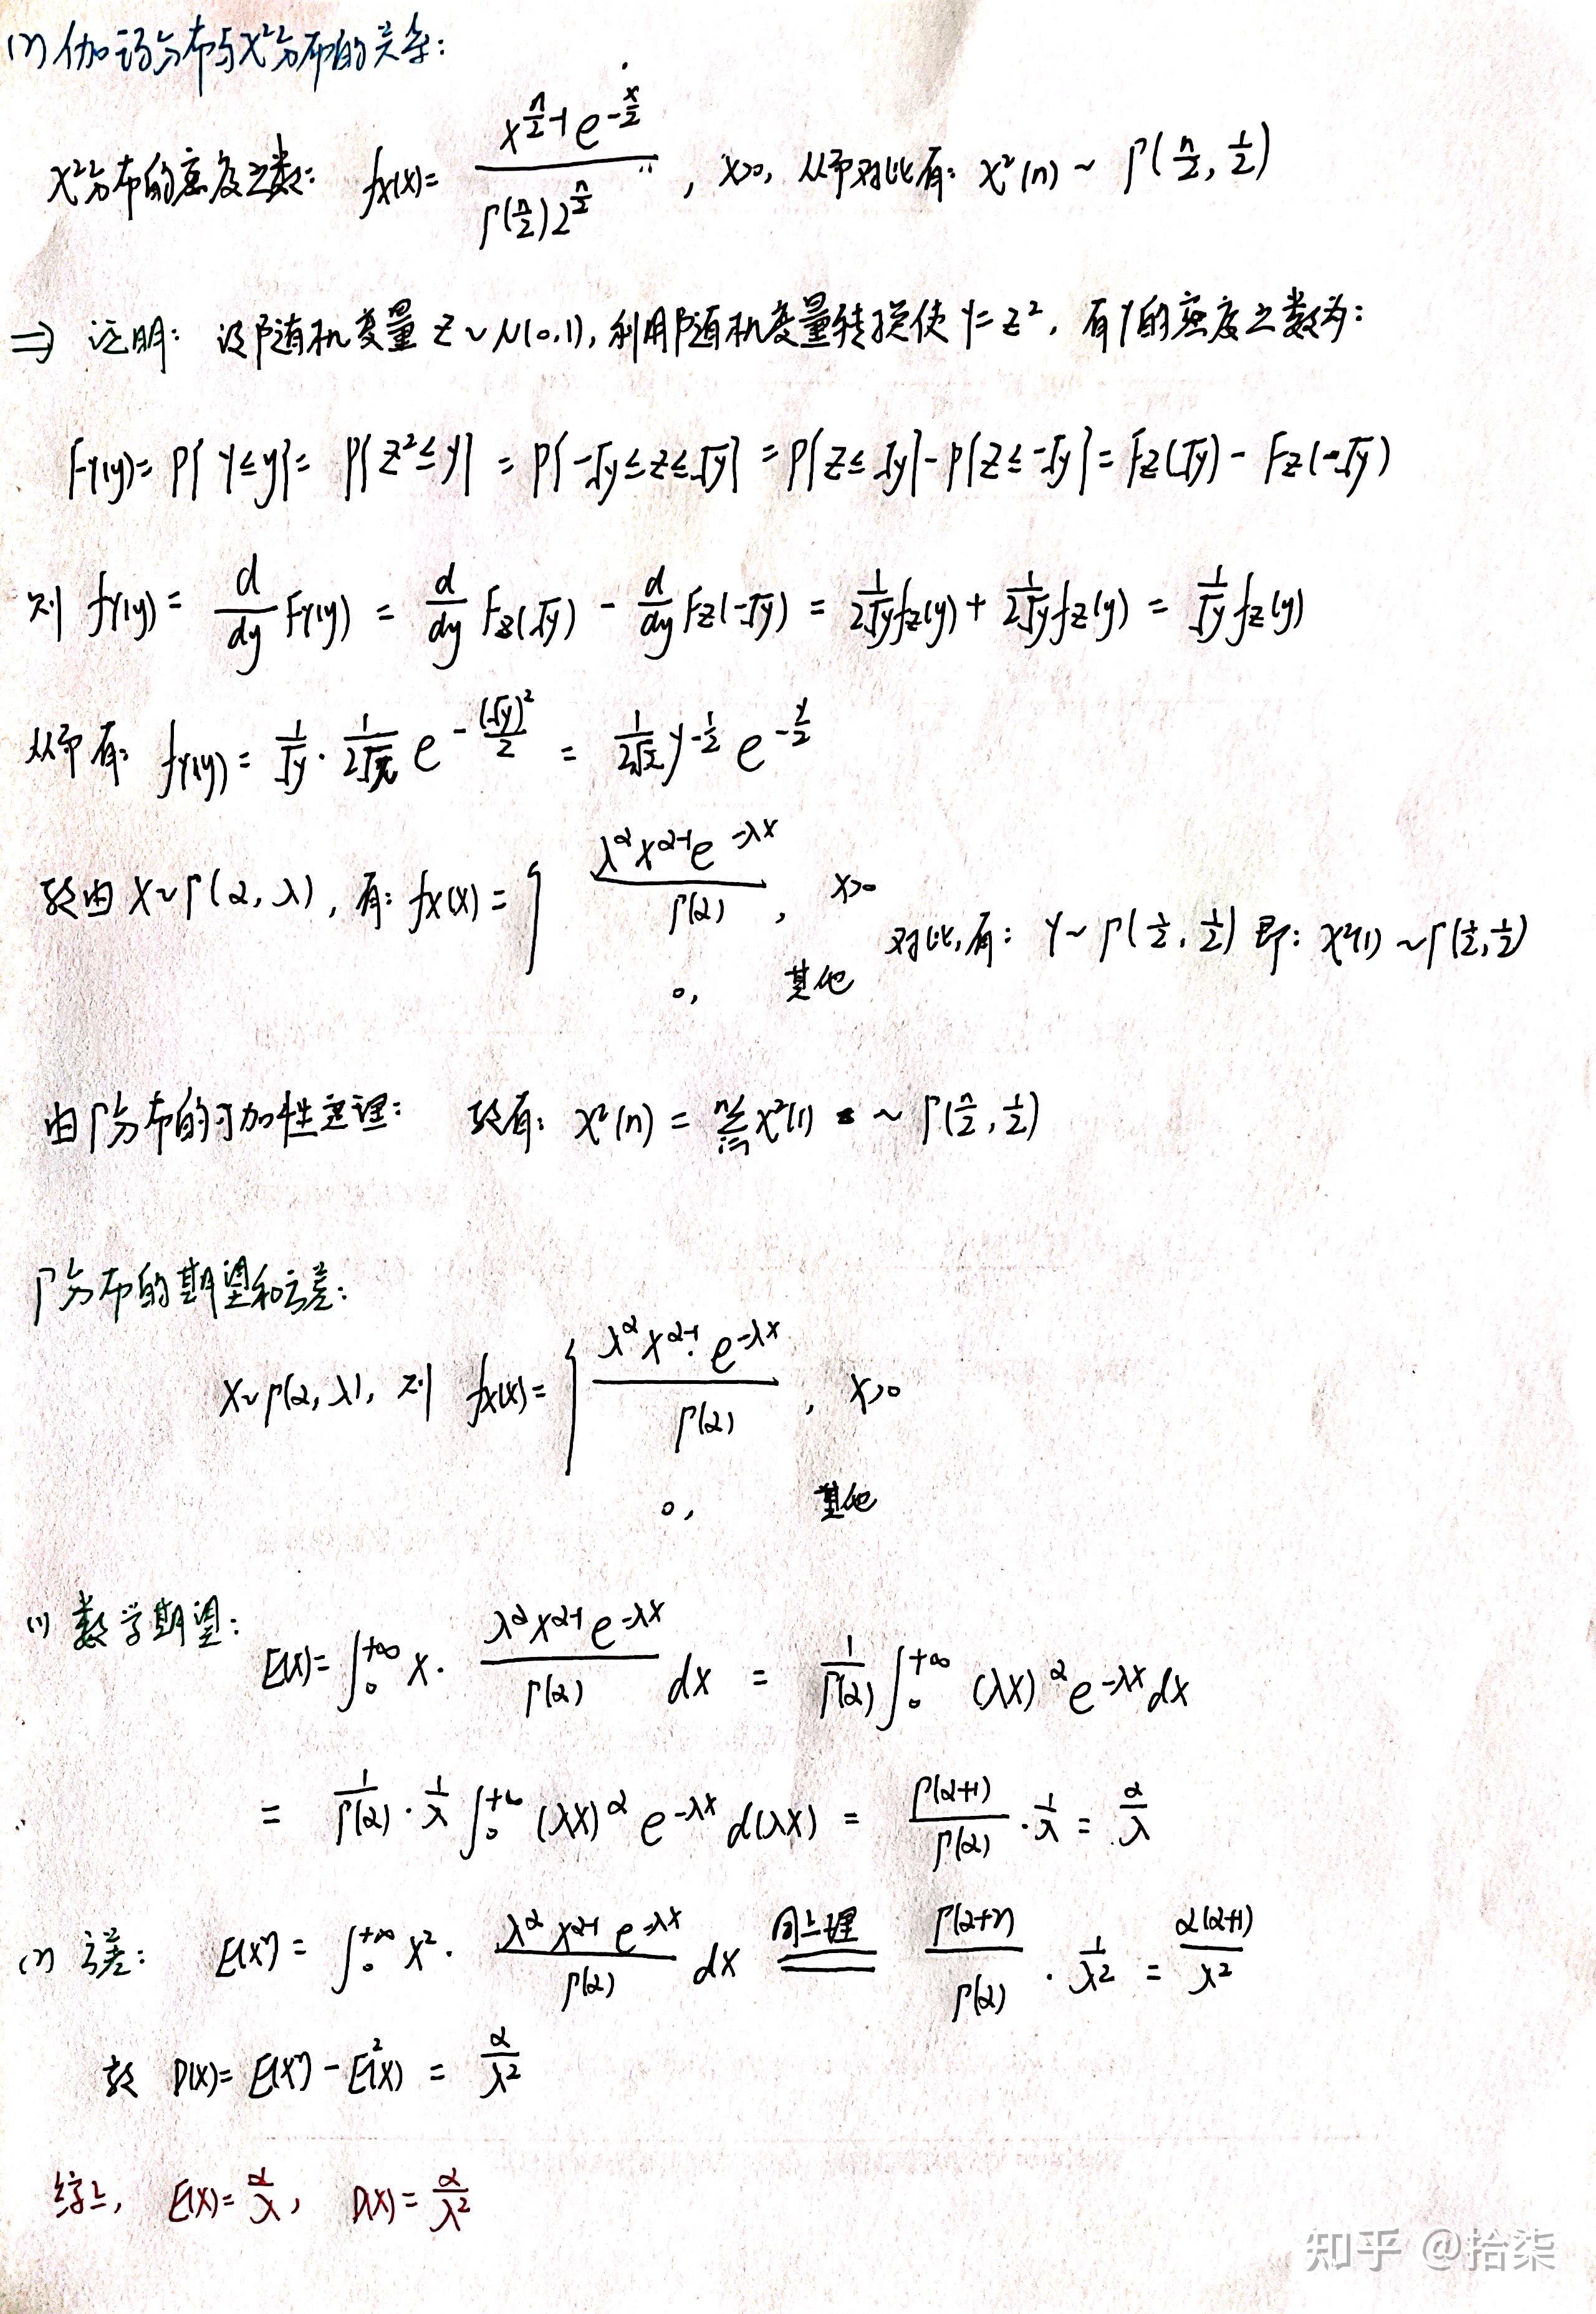 (2) 伽玛分布与χ²分布的关系:
χ²分布的密度函数: fX(x)= x^{n/2-1} e^{-x/2} / Γ(n/2)2^{n/2} , x>0, 从而对比有: χ²(n) ~ Γ(n/2, 1/2)
⇒ 证明: 设随机变量 Z~N(0,1), 利用随机变量转换使 Y=Z², 有Y的密度函数为:
FY(y)= P{Y≤y}= P{Z²≤y} = P{-√y≤Z≤√y} = P{Z≤√y}-P{Z≤-√y}= FZ(√y) - FZ(-√y)
则 fY(y)= d/dy FY(y) = d/dy FZ(√y) - d/dy FZ(-√y) = 1/2√y fZ(y)+ 1/2√y fZ(y) = 1/√y fZ(y)
从而有: fY(y)= 1/√y · 1/2√π e^{-(√y)²/2} = 1/2√π y^{-1/2} e^{-y/2}
故由 X~Γ(α, λ), 有: fX(x)= { λ^α x^{α-1} e^{-λx} / Γ(α) , x>0
0, 其他
对比,有: Y~Γ(1/2, 1/2) 即: χ²(1) ~Γ(1/2, 1/2)
由Γ分布的可加性定理: 故有: χ²(n) = Σ_{i=1}^{n} χ²(1) ~ Γ(n/2, 1/2)
Γ分布的期望和方差:
X~Γ(α, λ), 则 fX(x)= { λ^α x^{α-1} e^{-λx} / Γ(α) , x>0
0, 其他
(1) 数学期望:
E(X)= ∫₀^{+∞} x · λ^α x^{α-1} e^{-λx} / Γ(α) dx = 1/Γ(α) ∫₀^{+∞} (λx)^α e^{-λx} dx
= 1/Γ(α) · 1/λ ∫₀^{+∞} (λx)^α e^{-λx} d(λx) = Γ(α+1)/Γ(α) · 1/λ = α/λ
(2) 方差: E(X²) = ∫₀^{+∞} x² · λ^α x^{α-1} e^{-λx} / Γ(α) dx 同上理 = Γ(α+2)/Γ(α) · 1/λ² = α(α+1)/λ²
故 D(X)= E(X²) - E²(X) = α/λ²
综上, E(X)= α/λ, D(X)= α/λ²
知乎 @拾柒